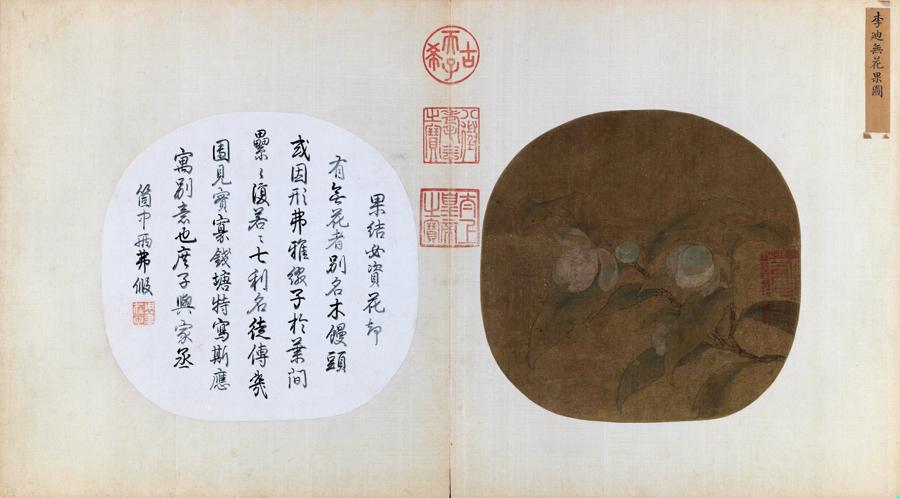 李迪無花果圖
古希天子
八徵耄念之寶
太上皇帝之寶
果結必資花却
有無花者別名木饅頭
或因形弗雅綴子於葉間
纍〻復若〻七利名徒傳幾
園見實寡錢塘特寫斯應
寓別意也庶子與家丞
箇中兩弗假